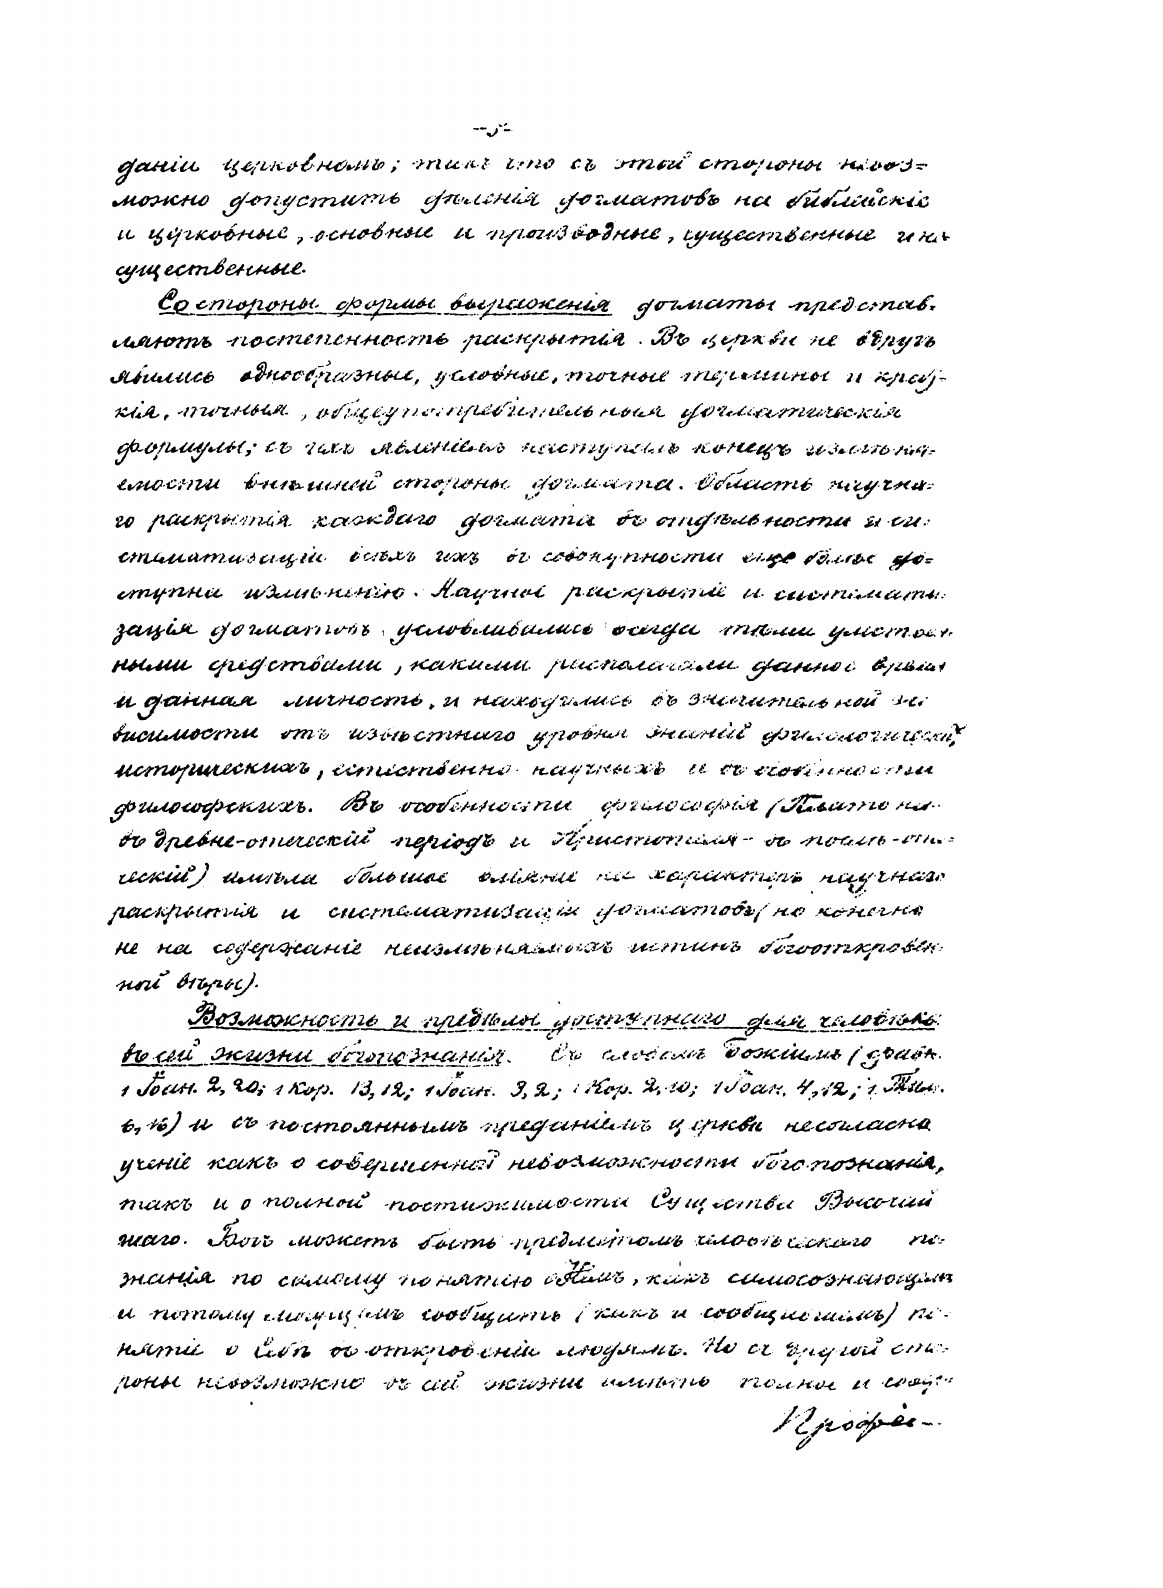 -5-
даніи церковномъ; такъ что съ этой стороны невоз=
можно допустить дѣленія догматовъ на библейскіе
и церковные, основные и производные, существенные и не
существенные.
Со стороны формы выраженія догматы представ-
ляютъ постепенность раскрытія. Въ церкви не вдругъ
явились однообразные, условные, точные термины и крат-
кія, точныя, общеупотребительныя догматическія
формулы; съ ихъ явленіемъ наступилъ конецъ измѣня-
емости внѣшней стороны догмата. Область научна-
го раскрытія каждаго догмата въ отдѣльности и си-
стематизаціи всѣхъ ихъ въ совокупности еще болѣе до=
ступна измѣненію. Научное раскрытіе и системати-
зація догматовъ условливались всегда тѣми умствен-
ными средствами, какими располагали данное время
и данная личность, и находились въ значительной за-
висимости отъ извѣстнаго уровня знаній филологическихъ,
историческихъ, естественно-научныхъ и въ особенности
философскихъ. Въ особенности философія (Платона-
въ древне-отческій періодъ и Аристотеля- въ послѣ-оте-
ческій) имѣла большое вліяніе на характеръ научнаго
раскрытія и систематизаціи догматовъ (но конечно
не на содержаніе неизмѣняемыхъ истинъ богооткровен-
ной вѣры).
Возможность и предѣлы доступнаго для человѣка
въ сей жизни богопознанія. Съ словомъ Божіимъ (сравн.
1 Іоан. 2, 20; 1 Кор. 13, 12; 1 Іоан. 3, 2; 1 Кор. 2, 10; 1 Іоан. 4, 12; 1 Тим.
6, 16) и съ постояннымъ преданіемъ церкви несогласно
ученіе какъ о совершенной невозможности богопознанія,
такъ и о полной постижимости Существа Высочай
шаго. Богъ можетъ быть предметомъ человѣческаго по-
знанія по самому понятію о Немъ, какъ самосознающемъ
и потому могущемъ сообщить (какъ и сообщившемъ) по-
нятіе о Себѣ въ откровеніи людямъ. Но съ другой сто-
роны невозможно въ сей жизни имѣть полное и